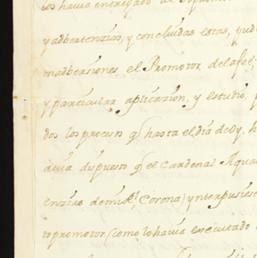 los havia entregado
y advertenzias, y concluidas estas, pud
madversiones, el Promotor dela fee
y particular aplicazion, y estudio,
dos los precisos q hasta el dia de oy, h
devia dispuesto q el Cardenal Aqua
enzias de mi Rl Corona) y interpusies
to promotor (como lo havia executado